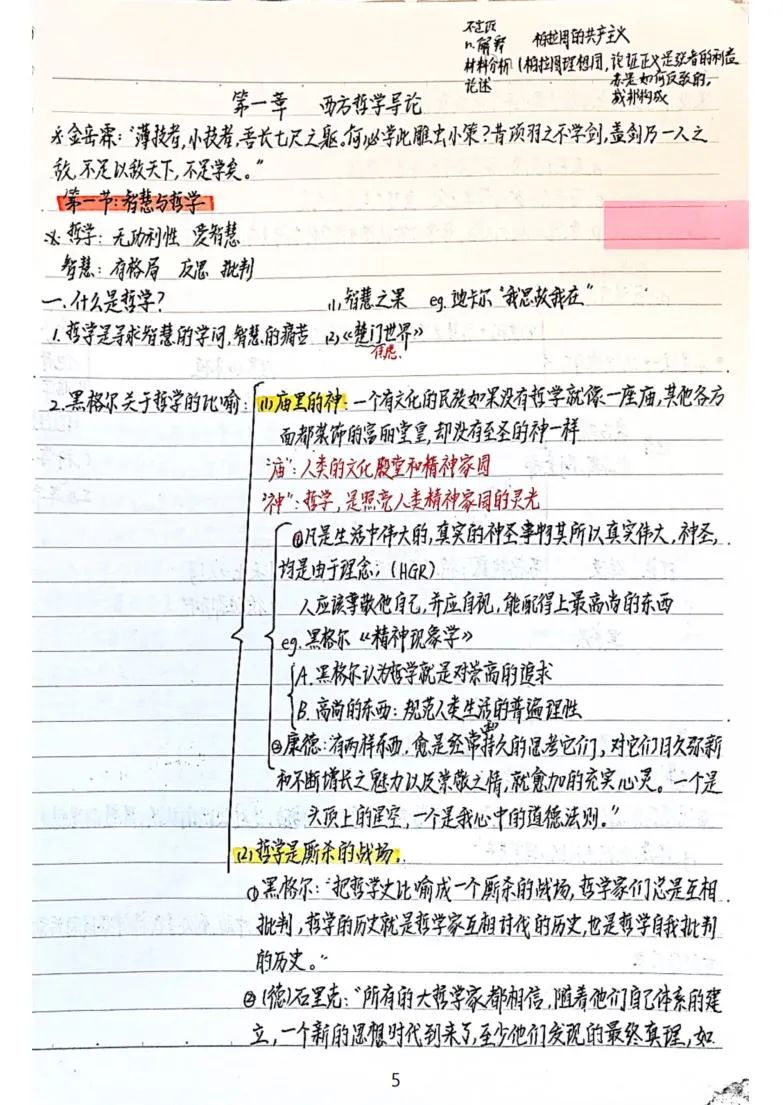 n. 解释 柏拉图的共产主义
材料分析 (柏拉图理想国, 论证正义是强者的利益
论述 苏是如何反驳的,
城邦构成
第一章 西方哲学导论
※金岳霖:“薄技者,小技者,吾长七尺之躯。何必学此雕虫小策?昔项羽之不学剑,盖剑乃一人之
敌,不足以敌天下,不足学矣。”
第一节:智慧与哲学
※ 哲学: 无功利性 爱智慧
智慧: 有格局 反思 批判
一.什么是哲学? (1)智慧之果 eg. 地卡尔“我思故我在”
1. 哲学是寻求智慧的学问,智慧的痛苦 (2)《楚门世界》
焦虑.
2. 黑格尔关于哲学的比喻: (1)庙里的神: 一个有文化的民族如果没有哲学就像一座庙,其他各方
面都装饰的富丽堂皇,却没有至圣的神一样
“庙”: 人类的文化殿堂和精神家园
“神”: 哲学, 是照亮人类精神家园的灵光
①凡是生活中伟大的,真实的神圣事物其所以真实伟大,神圣,
均是由于理念; (HGR)
人应该尊敬他自己,并应自视,能配得上最高尚的东西
eg. 黑格尔《精神现象学》
A. 黑格尔认为哲学就是对崇高的追求
B. 高尚的东西: 规范人类生活的普遍理性
②康德: 有两样东西, 愈是经常持久的思考它们, 对它们日久弥新
和不断增长之魅力以及崇敬之情,就愈加的充实心灵。一个是
头顶上的星空,一个是我心中的道德法则。”
(2)哲学是厮杀的战场.
①黑格尔:“把哲学史比喻成一个厮杀的战场,哲学家们总是互相
批判,哲学的历史就是哲学家互相讨伐的历史,也是哲学自我批判
的历史。”
②(德)石里克:“所有的大哲学家都相信,随着他们自己体系的建
立,一个新的思想时代到来了,至少他们发现的最终真理,如
5